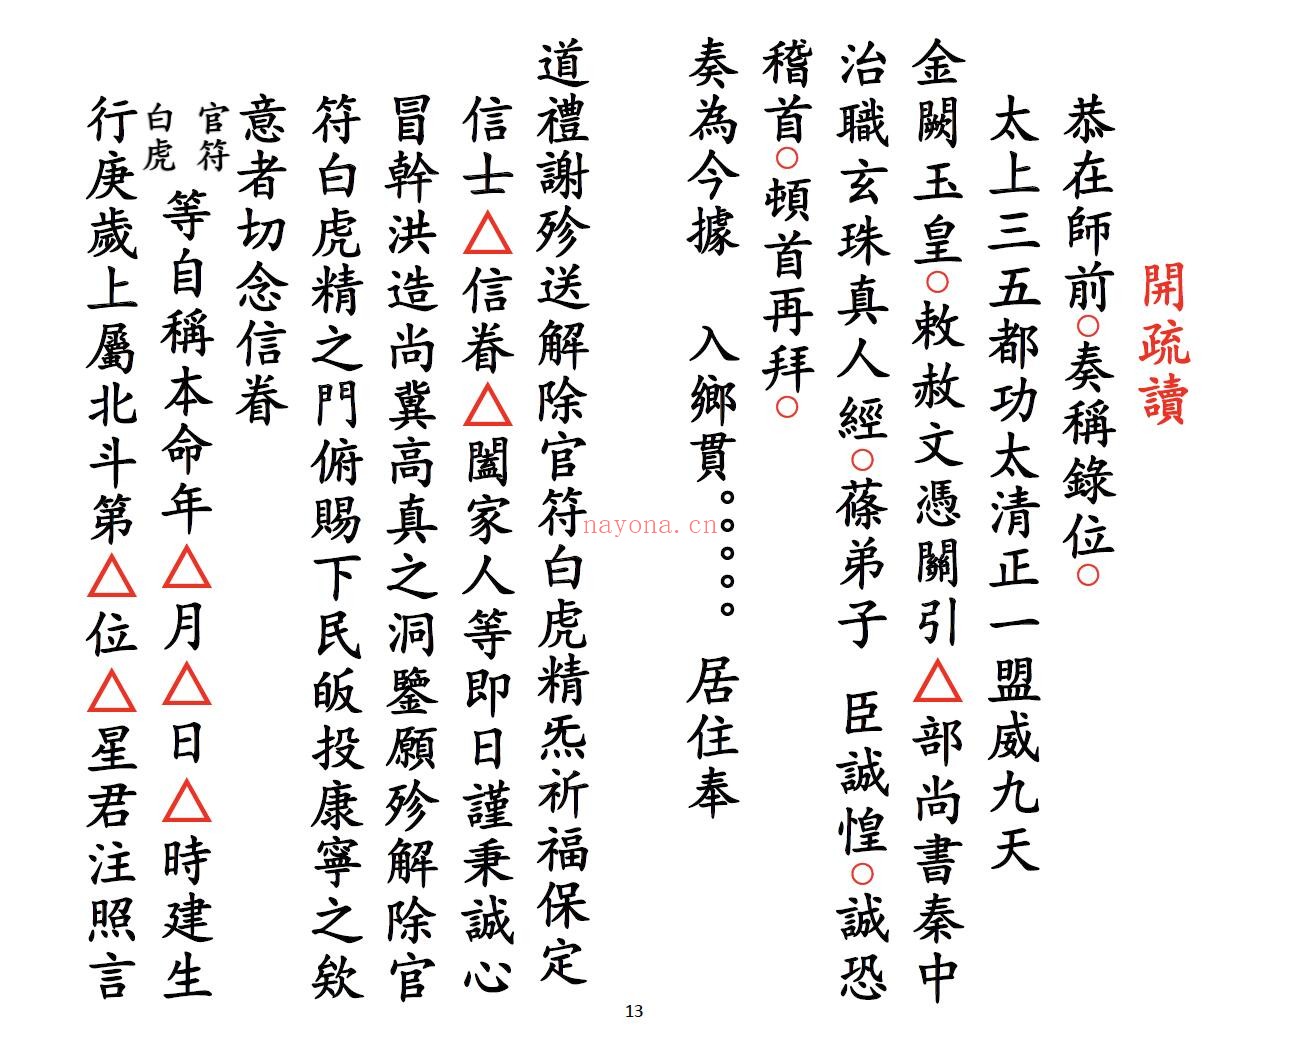 開疏讀
恭在師前○奏稱錄位○
太上三五都功太清正一盟威九天
金闕玉皇○敕赦文憑關引△部尚書秦中
治職玄珠真人經○蓧弟子 臣誠惶○誠恐
稽首○頓首再拜○
奏為今據 入鄉貫。。。。。居住奉
道禮謝殄送解除官符白虎精炁祈福保定
信士△信眷△闔家人等即日謹秉誠心
冒幹洪造尚冀高真之洞鑒願殄解除官
符白虎精之門俯賜下民皈投康寧之欸
意者切念信眷
官符
白虎
等自稱本命年△月△日△時建生
行庚歲上屬北斗第△位△星君注照言
nayona.cn
13